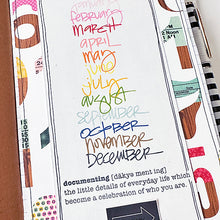 february
march
april
may
june
july
august
september
october
november
december
documenting [däkya ment ing]
the little details of everyday life which
become a celebration of who you are.